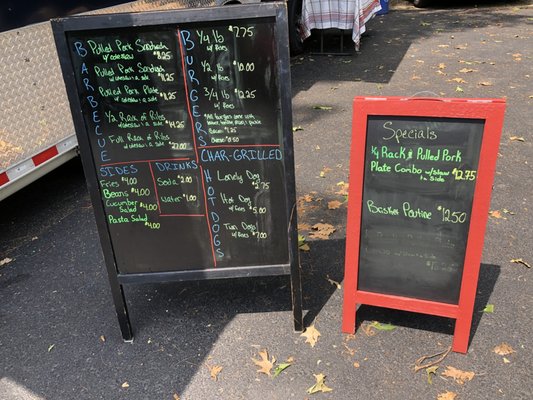 BARBECUE
Pulled Pork Sandwich
w/ coleslaw $8.25
Pulled Pork Sandwich
w/ coleslaw & a side $11.25
Pulled Pork Plate
w/ coleslaw & a side $11.25
1/2 Rack of Ribs
w/ coleslaw & a side $14.25
Full Rack of Ribs
w/ coleslaw & a side $27.00
BURGERS
1/4 lb $7.75
w/ fries
1/2 lb $10.00
w/ fries
3/4 lb $12.25
w/ fries
Bacon $1.25
Cheese $0.50
SIDES
Fries $4.00
Beans $4.00
Cucumber
Salad $4.00
Pasta Salad $4.00
DRINKS
Soda $2.00
Water $1.00
CHAR-GRILLED
HOT DOGS
Lonely Dog
$2.75
Hot Dog
w/ fries $5.00
Twin Dog
w/ fries $7.00
Specials
1/4 Rack & Pulled Pork
Plate Combo w/ slaw $12.75
& a side
Basket Poutine $12.50